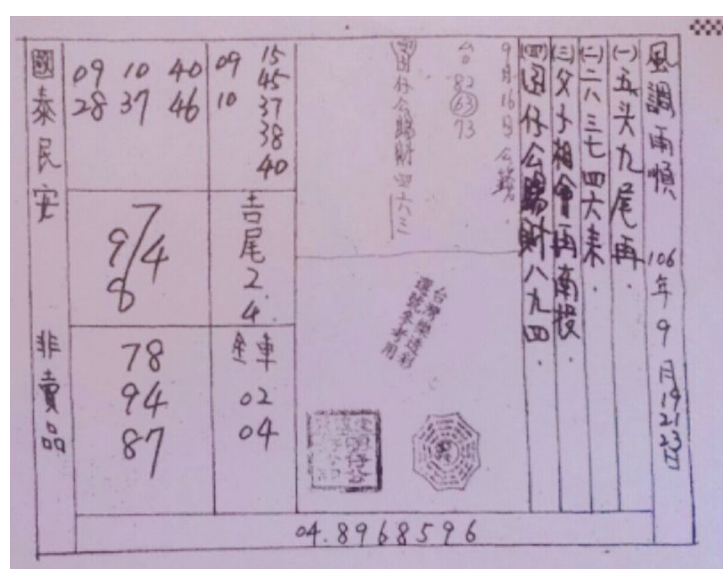 風調雨順 106年9月19 21 23日
(一)五头九尾再.
(二)二八三七四六来.
(三)父子相會再南投.
(四)囝仔公賜財八九四.
9月16日公籤.
合 82 63 73
(四)囝仔公賜財四六三
台灣樂透彩
選號參考用
15
09 45
10 37
38
40
吉尾2.4.
全車
02
04
09 10 40
28 37 46
7
9/4
8
78
94
87
國泰民安 非賣品
04.8968596